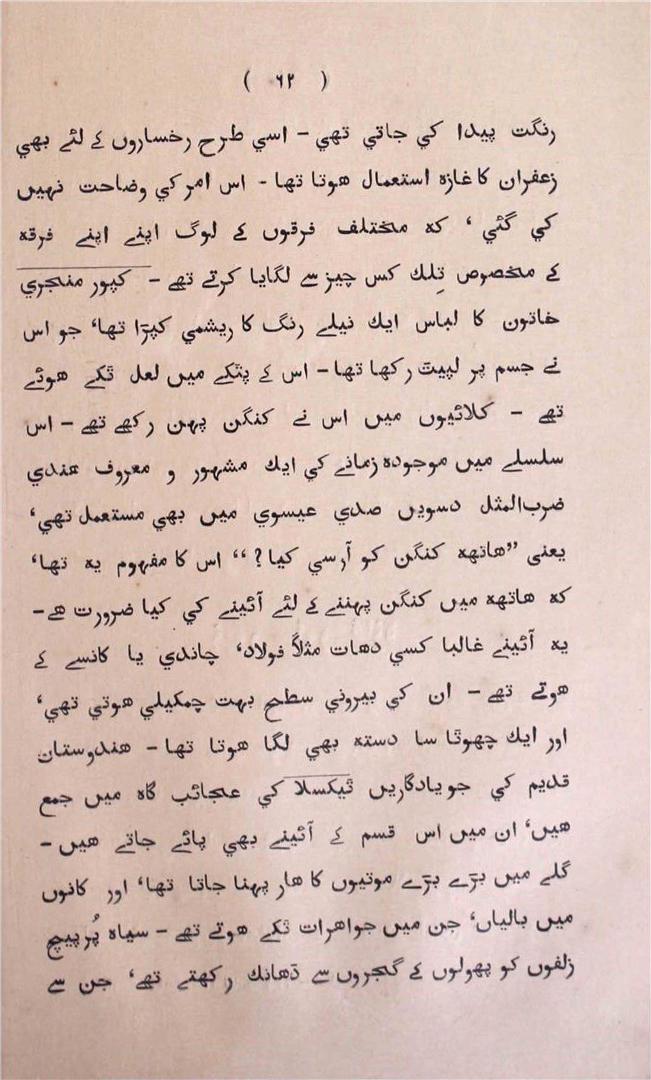 ( ۶۲ )
رنگت پیدا کي جاتي تھي - اسي طرح رخساروں کے لئے بھي
زعفران کا غازہ استعمال ھوتا تھا - اس امر کي وضاحت نھیں
کي گئي ، کہ مختلف فرقوں کے لوگ اپنے اپنے فرقہ
کے مخصوص تِلك کس چیز سے لگایا کرتے تھے - کپور منجري
خاتون کا لباس ایك نیلے رنگ کا ریشمي کپڑا تھا، جو اس
نے جسم پر لپیٹ رکھا تھا - اس کے پٹکے میں لعل ٹکے ھوئے
تھے - کلائیوں میں اس نے کنگن پہن رکھے تھے - اس
سلسلے میں موجودہ زمانے کي ایك مشہور و معروف ھندي
ضرب‌المثل دسویں صدي عیسوي میں بھي مستعمل تھي،
یعنی ”ھاتھہ کنگن کو آرسي کیا؟“ اس کا مفہوم یہ تھا،
کہ ھاتھہ میں کنگن پہننے کے لئے آئینے کي کیا ضرورت ھے -
یہ آئینے غالبا کسي دھات مثلاً فولاد، چاندي یا کانسے کے
ھوتے تھے - ان کي بیروني سطح بہت چمکیلي ھوتي تھي،
اور ایك چھوٹا سا دستہ بھي لگا ھوتا تھا - ھندوستان
قدیم کي جو یادگاریں ٹیکسلا کي عجائب گاہ میں جمع
ھیں، ان میں اس قسم کے آئینے بھي پائے جاتے ھیں -
گلے میں بڑے بڑے موتیوں کا ھار پہنا جاتا تھا، اور کانوں
میں بالیاں، جن میں جواھرات ٹکے ھوتے تھے - سیاہ پُرپیچ
زلفوں کو پھولوں کے گجروں سے ڈھانك رکھتے تھے، جن سے